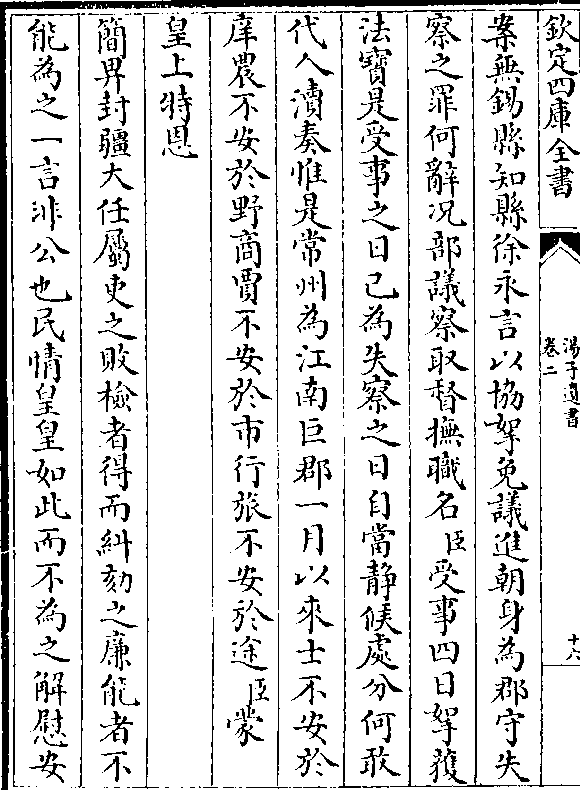 欽定四庫全書
湯子遺書
卷二
十六
案無錫縣知縣徐永言以協拏免議進朝身為郡守失
察之罪何辭况部議察取督撫職名臣受事四日拏獲
法寶是受事之日已為失察之日自當静候處分何敢
代人瀆奏惟是常州為江南巨郡一月以來士不安於
庠農不安於野商賈不安於市行旅不安於途臣蒙
皇上特恩
簡畀封疆大任屬吏之敗檢者得而糾劾之廉能者不
能為之一言非公也民情皇皇如此而不為之解慰安